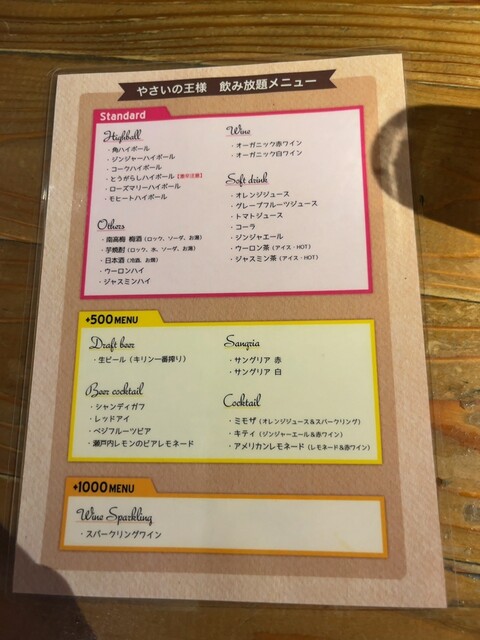 やさいの王様 飲み放題メニュー
Standard
Highball
・角ハイボール
・ジンジャーハイボール
・コークハイボール
・とうがらしハイボール【激辛注意】
・ローズマリーハイボール
・モヒートハイボール
Others
・南高梅 梅酒(ロック、ソーダ、お湯)
・芋焼酎(ロック、水、ソーダ、お湯)
・日本酒(冷酒、お燗)
・ウーロンハイ
・ジャスミンハイ
Wine
・オーガニック赤ワイン
・オーガニック白ワイン
Soft drink
・オレンジジュース
・グレープフルーツジュース
・トマトジュース
・コーラ
・ジンジャエール
・ウーロン茶(アイス・HOT)
・ジャスミン茶(アイス・HOT)
+500MENU
Draft beer
・生ビール(キリン一番搾り)
Beer cocktail
・シャンディガフ
・レッドアイ
・ベジフルーツビア
・瀬戸内レモンのビアレモネード
Sangria
・サングリア 赤
・サングリア 白
Cocktail
・ミモザ(オレンジジュース&スパークリング)
・キティ(ジンジャーエール&赤ワイン)
・アメリカンレモネード(レモネード&赤ワイン)
+1000MENU
Wine Sparkling
・スパークリングワイン